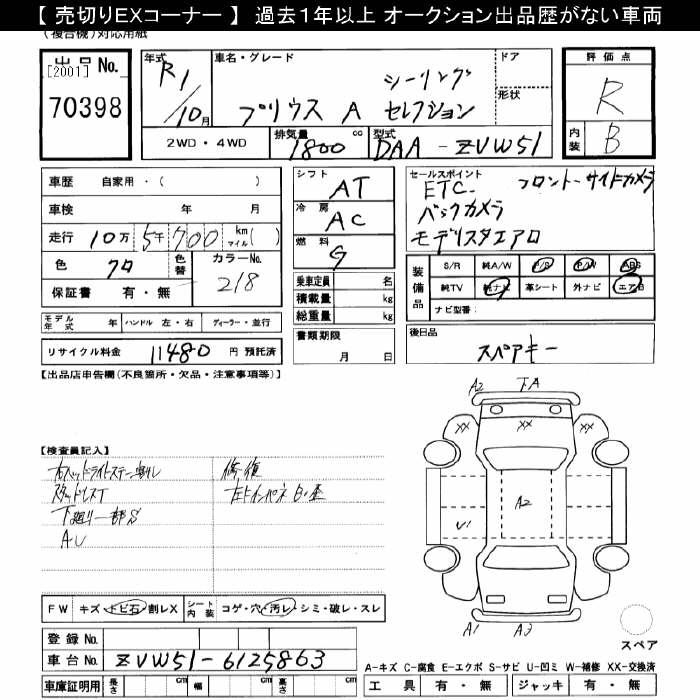 【 売切りEXコーナー 】 過去1年以上 オークション出品歴がない車両
(複合機)対応用紙
出品No.
[2001]
70398
年式 R1/10月
車名・グレード プリウス A シーリング セレクション
ドア
形状
2WD・4WD
排気量 1800 cc
型式 DAA-ZVW51
評価点
R
内装 B
車歴 自家用・( )
車検 年 月
走行 10万 5千 700 km マイル( )
色 クロ 色替 カラーNo. 218
保証書 有・無
モデル年式 年 ハンドル 左・右 ディーラー・並行
リサイクル料金 11480 円 預託済
シフト AT
冷房 AC
燃料 G
乗車定員 名
積載量 kg
総重量 kg
書類期限
月 日
セールスポイント
ETC フロント-サイドカメラ
バックカメラ
モデリスタエアロ
装備品
S/R 純A/W P/S P/W ABS
純TV 純ナビ 革シート 外ナビ エアB
ナビ型番:
後日品
スペアキー
【出品店申告欄(不良箇所・欠品・注意事項等)】
【検査員記入】
右ヘッドライトステー割れ
スタッドレスT
下廻り一部S
AU
修復
FW キズ・トビ石・割レX
シート内装 コゲ・穴・汚レ・シミ・破レ・スレ
登録No.
車台No. ZVW51-6125863
車庫証明用 長さ cm 幅 cm 高さ cm
A2 下A
XX XX XX
A2
U1
A1 A3
スペア
A-キズ C-腐食 E-エクボ S-サビ U-凹ミ W-補修 XX-交換済
工具 有・無 ジャッキ 有・無